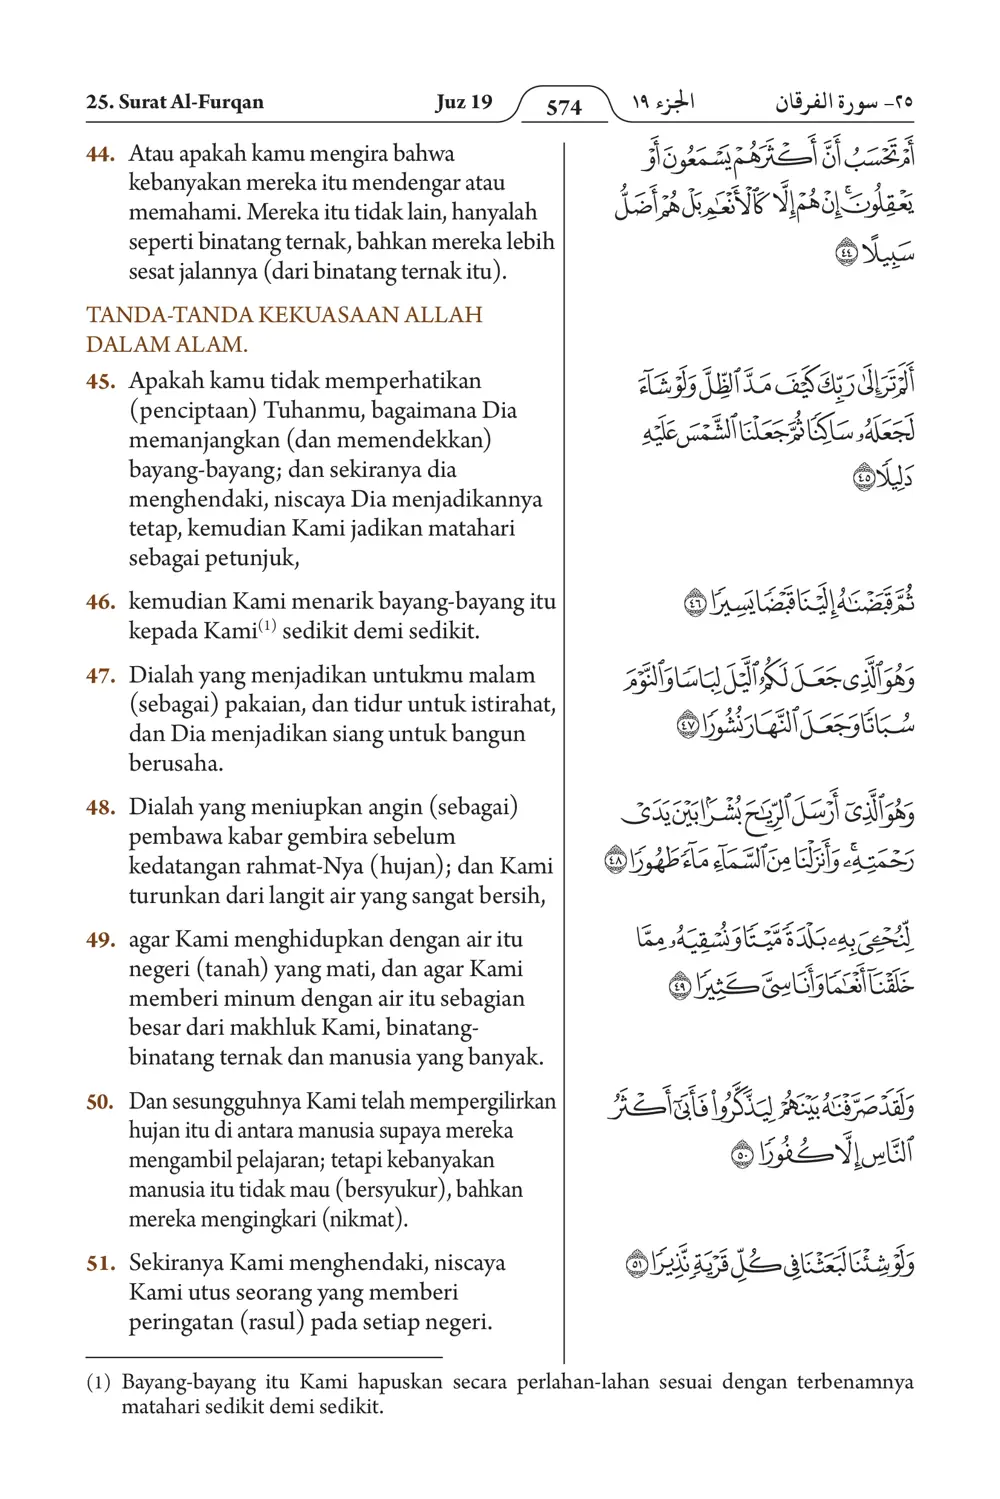 25. Surat Al-Furqan Juz 19 574 الجزء ١٩ ٢٥- سورة الفرقان
44. Atau apakah kamu mengira bahwa
kebanyakan mereka itu mendengar atau
memahami. Mereka itu tidak lain, hanyalah
seperti binatang ternak, bahkan mereka lebih
sesat jalannya (dari binatang ternak itu).
أَمۡ تَحۡسَبُ أَنَّ أَكۡثَرَهُمۡ يَسۡمَعُونَ أَوۡ
يَعۡقِلُونَۚ إِنۡ هُمۡ إِلَّا كَٱلۡأَنۡعَٰمِ بَلۡ هُمۡ أَضَلُّ
سَبِيلًا ٤٤
TANDA-TANDA KEKUASAAN ALLAH
DALAM ALAM.
45. Apakah kamu tidak memperhatikan
(penciptaan) Tuhanmu, bagaimana Dia
memanjangkan (dan memendekkan)
bayang-bayang; dan sekiranya dia
menghendaki, niscaya Dia menjadikannya
tetap, kemudian Kami jadikan matahari
sebagai petunjuk,
أَلَمۡ تَرَ إِلَىٰ رَبِّكَ كَيۡفَ مَدَّ ٱلظِّلَّ وَلَوۡ شَآءَ
لَجَعَلَهُۥ سَاكِنٗا ثُمَّ جَعَلۡنَا ٱلشَّمۡسَ عَلَيۡهِ
دَلِيلٗا ٤٥
46. kemudian Kami menarik bayang-bayang itu
kepada Kami(1) sedikit demi sedikit.
ثُمَّ قَبَضۡنَٰهُ إِلَيۡنَا قَبۡضٗا يَسِيرٗا ٤٦
47. Dialah yang menjadikan untukmu malam
(sebagai) pakaian, dan tidur untuk istirahat,
dan Dia menjadikan siang untuk bangun
berusaha.
وَهُوَ ٱلَّذِي جَعَلَ لَكُمُ ٱلَّيۡلَ لِبَاسٗا وَٱلنَّوۡمَ
سُبَاتٗا وَجَعَلَ ٱلنَّهَارَ نُشُورٗا ٤٧
48. Dialah yang meniupkan angin (sebagai)
pembawa kabar gembira sebelum
kedatangan rahmat-Nya (hujan); dan Kami
turunkan dari langit air yang sangat bersih,
وَهُوَ ٱلَّذِيٓ أَرۡسَلَ ٱلرِّيَٰحَ بُشۡرَۢا بَيۡنَ يَدَيۡ
رَحۡمَتِهِۦۚ وَأَنزَلۡنَا مِنَ ٱلسَّمَآءِ مَآءٗ طَهُورٗا ٤٨
49. agar Kami menghidupkan dengan air itu
negeri (tanah) yang mati, dan agar Kami
memberi minum dengan air itu sebagian
besar dari makhluk Kami, binatang-
binatang ternak dan manusia yang banyak.
لِّنُحۡـِۧيَ بِهِۦ بَلۡدَةٗ مَّيۡتٗا وَنُسۡقِيَهُۥ مِمَّا
خَلَقۡنَآ أَنۡعَٰمٗا وَأَنَاسِيَّ كَثِيرٗا ٤٩
50. Dan sesungguhnya Kami telah mempergilirkan
hujan itu di antara manusia supaya mereka
mengambil pelajaran; tetapi kebanyakan
manusia itu tidak mau (bersyukur), bahkan
mereka mengingkari (nikmat).
وَلَقَدۡ صَرَّفۡنَٰهُ بَيۡنَهُمۡ لِيَذَّكَّرُواْ فَأَبَىٰٓ أَكۡثَرُ
ٱلنَّاسِ إِلَّا كُفُورٗا ٥٠
51. Sekiranya Kami menghendaki, niscaya
Kami utus seorang yang memberi
peringatan (rasul) pada setiap negeri.
وَلَوۡ شِئۡنَا لَبَعَثۡنَا فِي كُلِّ قَرۡيَةٖ نَّذِيرٗا ٥١
(1) Bayang-bayang itu Kami hapuskan secara perlahan-lahan sesuai dengan terbenamnya
matahari sedikit demi sedikit.